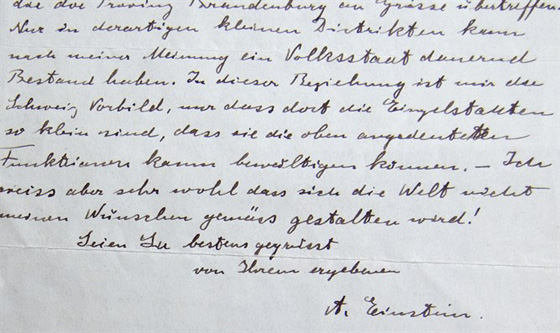 die die Provinz Brandenburg an Grösse übertreffen.
Nur in derartigen kleinen Distrikten kann
nach meiner Meinung ein Volksstaat dauernd
Bestand haben. In dieser Beziehung ist mir die
Schweiz Vorbild, nur dass dort die Einzelstaaten
so klein sind, dass sie die oben angedeuteten
Funktionen kaum bewältigen können. – Ich
weiss aber sehr wohl dass sich die Welt nicht
meinen Wünschen gemäss gestalten wird!
Seien Sie bestens gegrüsst
von Ihrem ergebenen
A. Einstein.